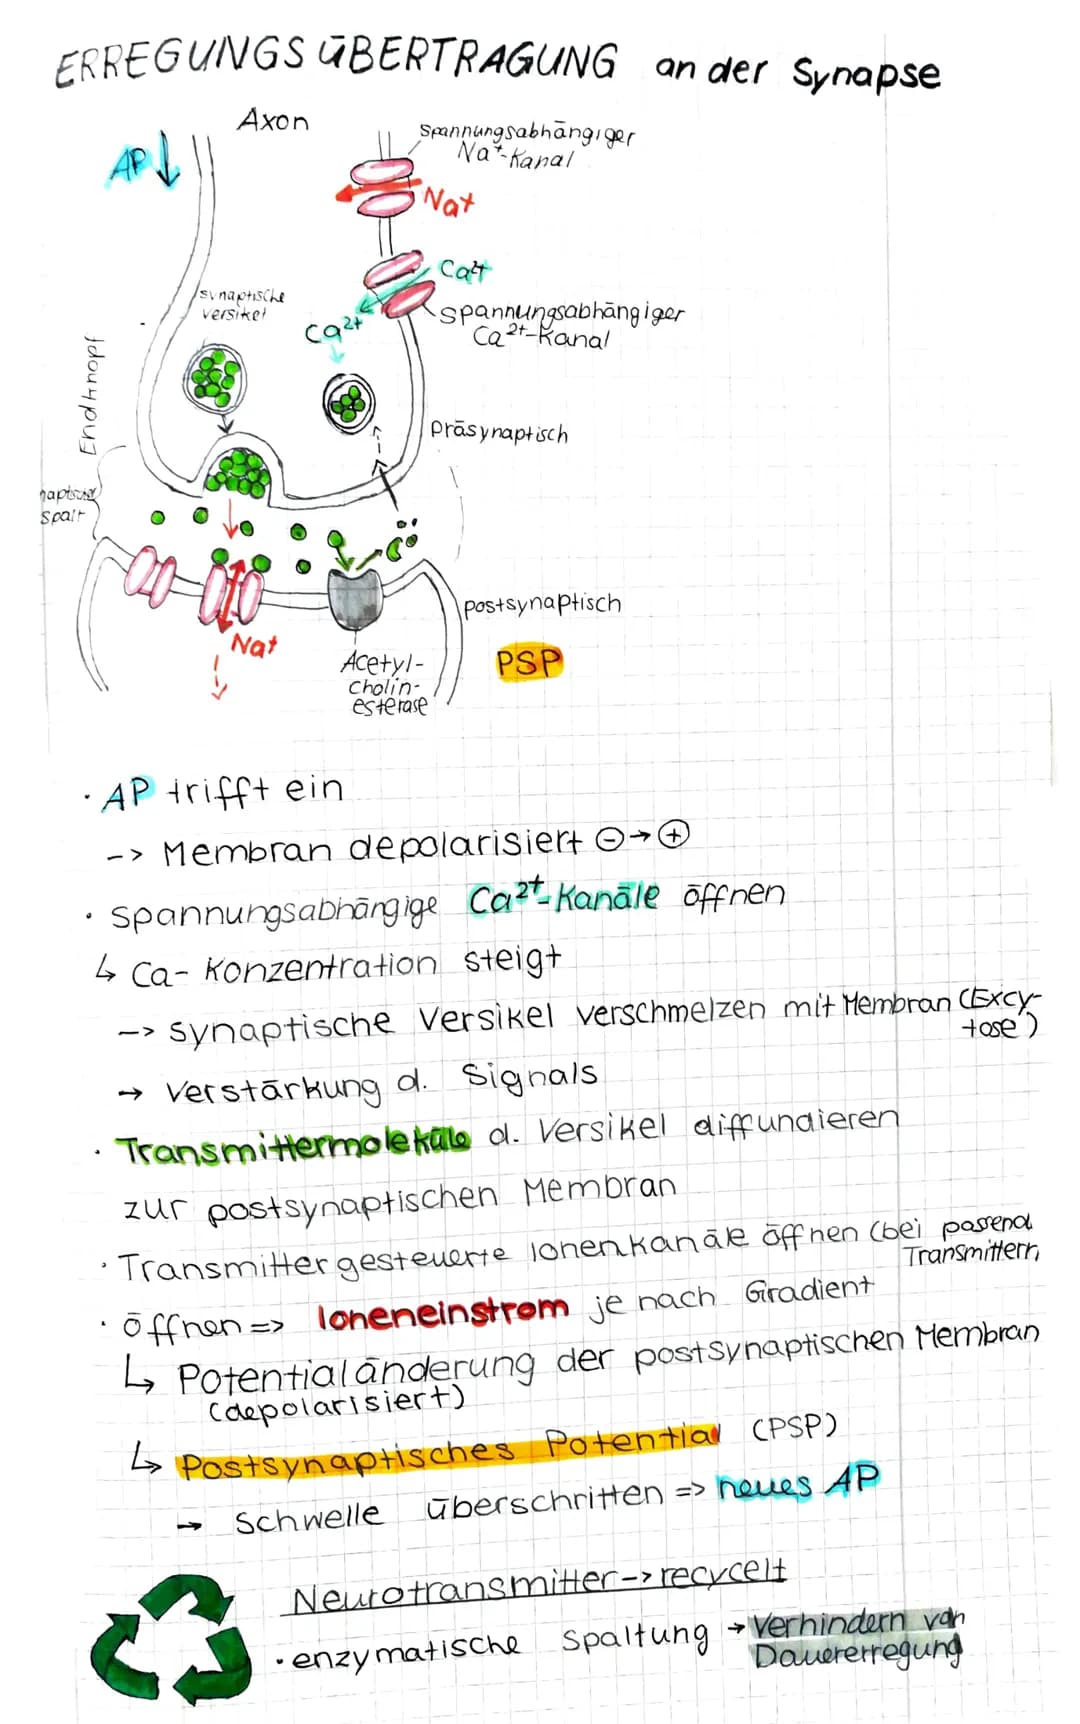 ERREGUNGSÜBERTRAGUNG an der Synapse
Axon
AP
spannungsabhängiger
Na⁺-Kanal
Na⁺
Ca²⁺
synaptische
versikel
Ca²⁺
spannungsabhängiger
Ca²⁺-Kanal
Endknopf
präsynaptisch
spalt
postsynaptisch
Na⁺
Acetyl-
cholin-
esterase
PSP
· AP trifft ein
--> Membran depolarisiert ⊖→⊕
· spannungsabhängige Ca²⁺-Kanäle öffnen
↳ Ca- Konzentration steigt
--> synaptische Versikel verschmelzen mit Membran (Excy-
tose)
→ Verstärkung d. Signals
· Transmittermoleküle d. Versikel diffundieren
zur postsynaptischen Membran
· Transmittergesteuerte Ionenkanäle öffnen (bei pasend
Transmittern)
· Öffnen => Ioneneinstrom je nach Gradient
↳ Potentialänderung der postsynaptischen Membran
(depolarisiert)
↳ Postsynaptisches Potential (PSP)
→ Schwelle überschritten => neues AP
Neurotransmitter --> recycelt
· enzymatische Spaltung → Verhindern von
Dauererregung